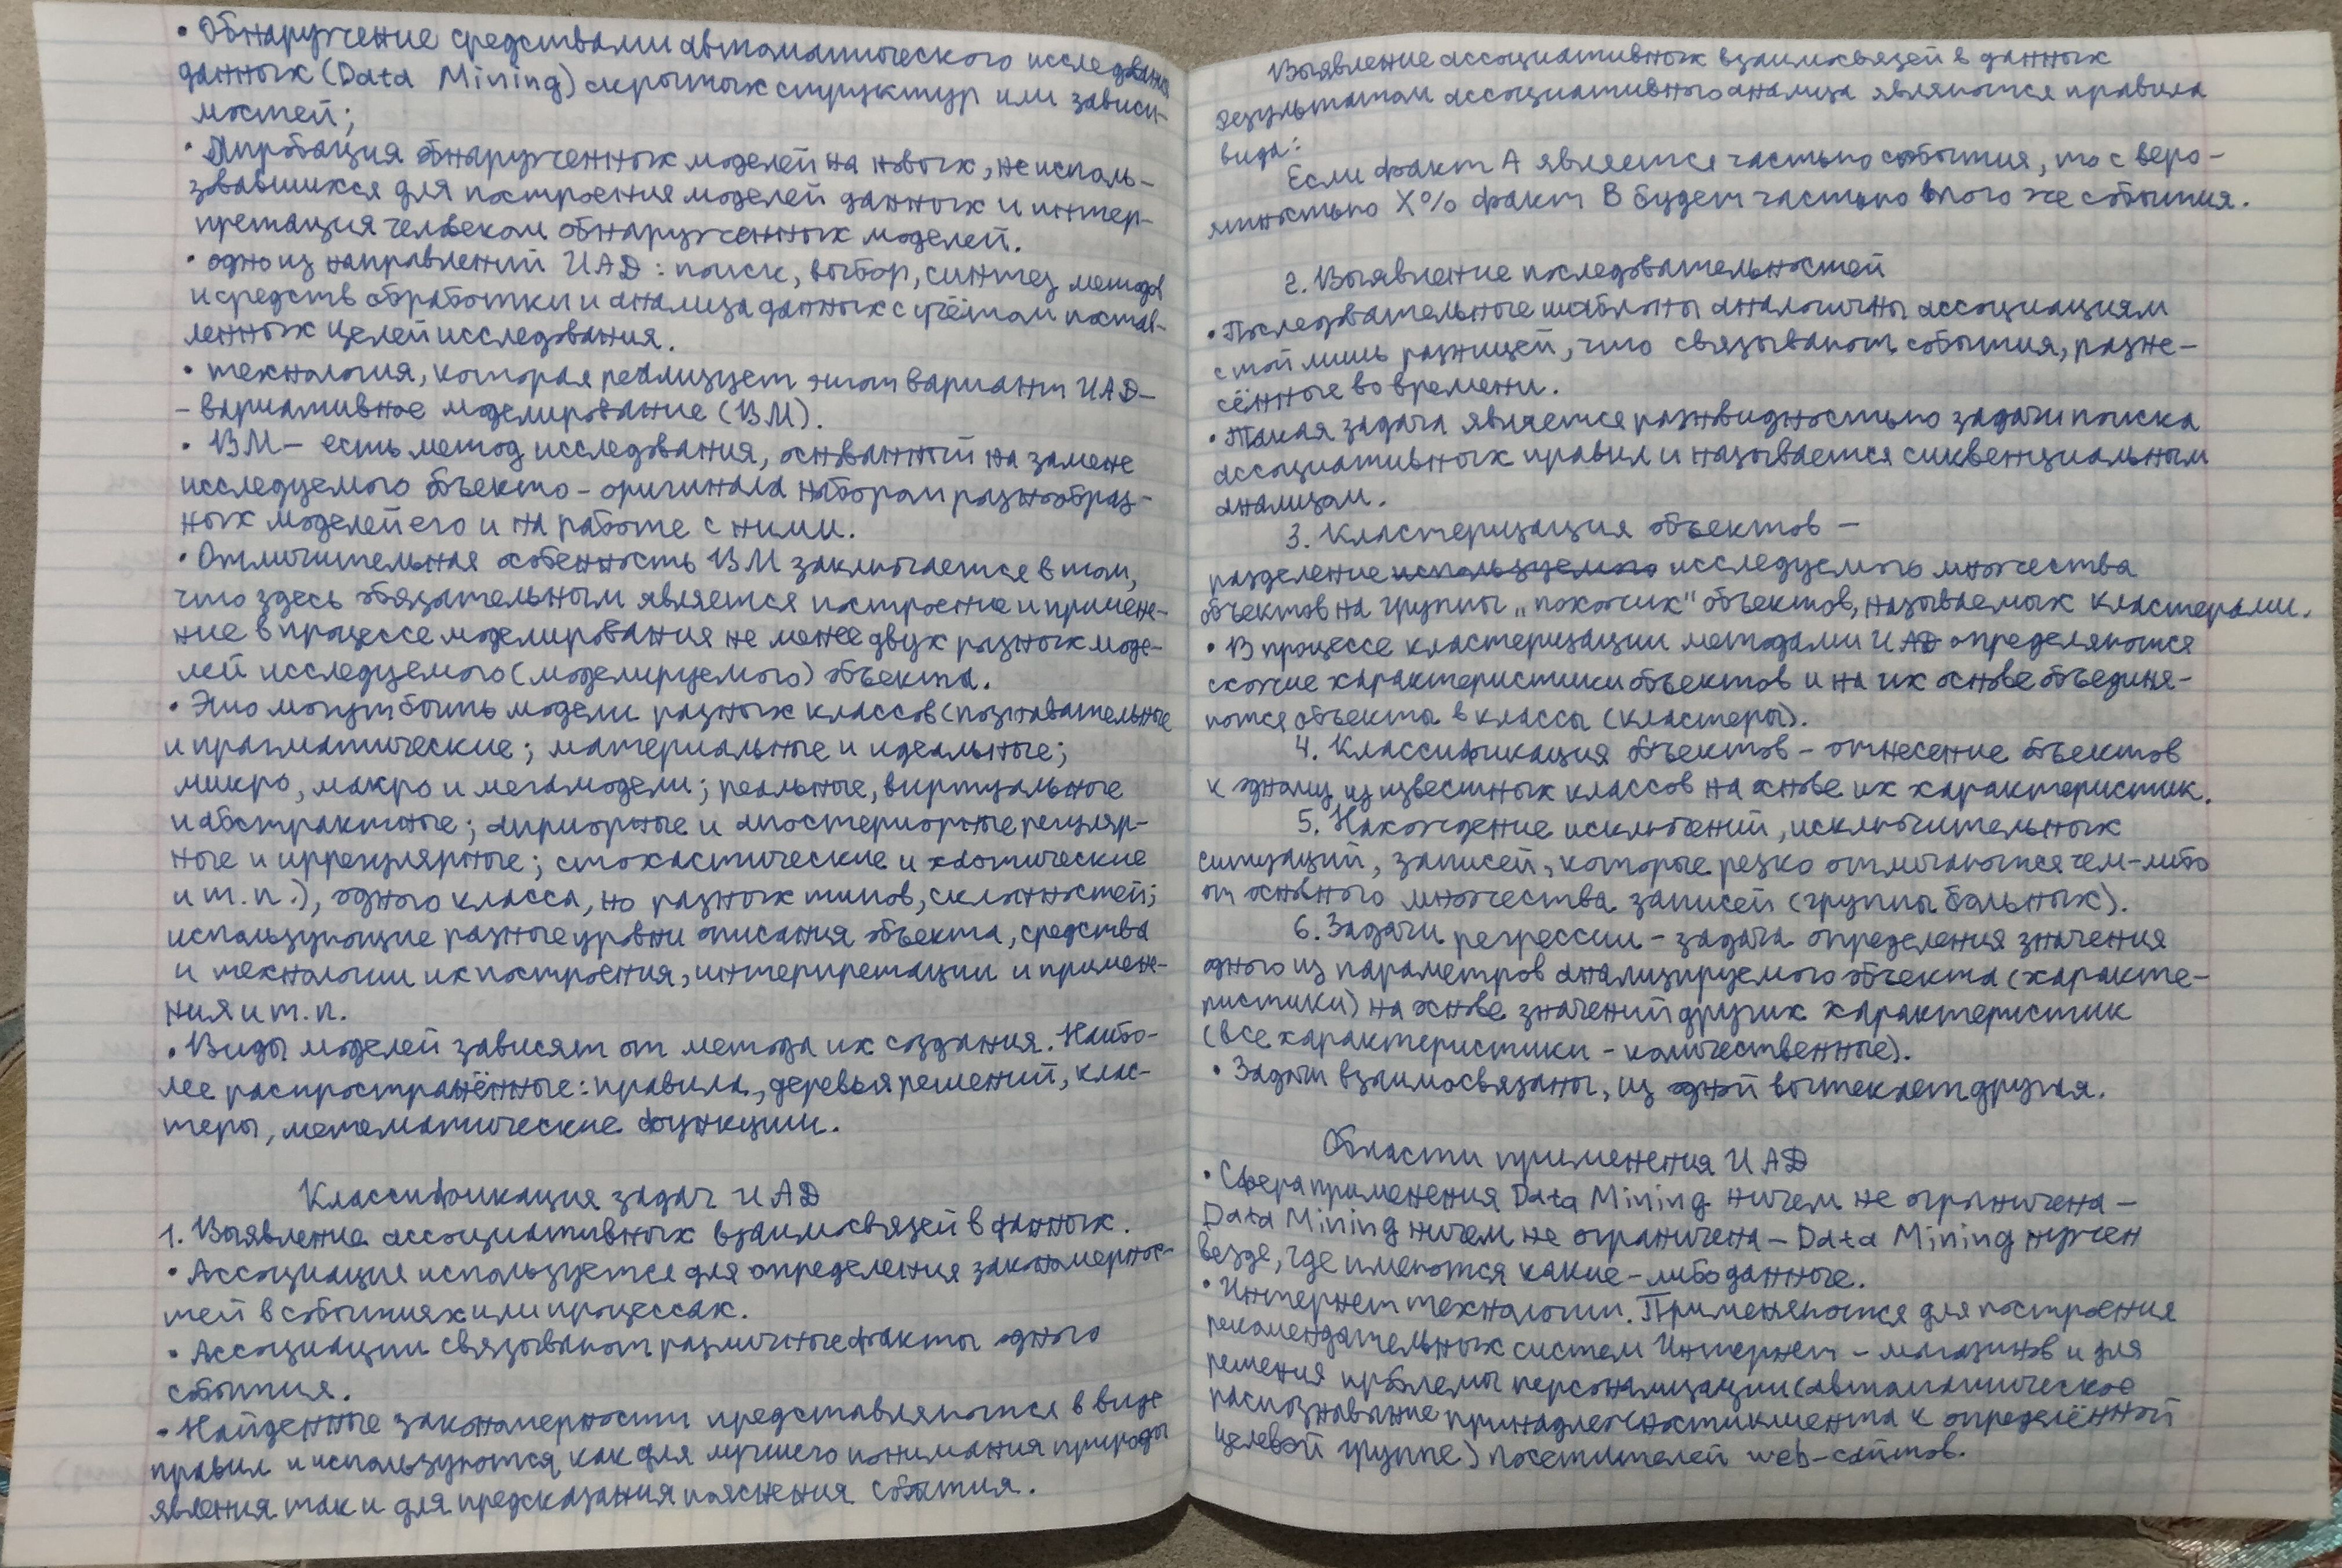 • Обнаружение средствами автоматического исследования
данных (Data Mining) скрытых структур или зависи-
мостей;
• Апробация обнаруженных моделей на новых, не исполь-
зовавшихся для построения моделей данных и интер-
претация человеком обнаруженных моделей.
• одно из направлений ИАД: поиск, выбор, синтез методов
и средств обработки и анализа данных с учётом постав-
ленных целей исследования.
• технология, которая реализует этот вариант ИАД-
- вариативное моделирование (ВМ).
• ВМ - есть метод исследования, основанный на замене
исследуемого объекто-оригинала набором разнообраз-
ных моделей его и на работе с ними.
• Отличительная особенность ВМ заключается в том,
что здесь обязательным является построение и примене-
ние в процессе моделирования не менее двух разных моде-
лей исследуемого (моделируемого) объекта.
• Это могут быть модели разных классов (познавательные
и прагматические; материальные и идеальные;
микро, макро и мегамодели; реальные, виртуальные
и абстрактные; априорные и апостериорные регуляр-
ные и иррегулярные; стохастические и хаотические
и т.п.), одного класса, но разных типов, сложностей;
использующие разные уровни описания объекта, средства
и технологии их построения, интерпретации и примене-
ния и т.п.
• Виды моделей зависят от метода их создания. Наибо-
лее распространённые: правила, деревья решений, клас-
теры, математические функции.
Классификация задач ИАД
1. Выявление ассоциативных взаимосвязей в данных.
• Ассоциация используется для определения закономернос-
тей в событиях или процессах.
• Ассоциации связывают различные факты одного
события.
• Найденные закономерности представляются в виде
правил и используются как для лучшего понимания природы
явления так и для предсказания появления события.
Выявление ассоциативных взаимосвязей в данных
результатом ассоциативного анализа являются правила
вида:
Если факт А является частью события, то с веро-
ятностью X% факт В будет частью того же события.
2. Выявление последовательностей
• Последовательные шаблоны аналогичны ассоциациям
с той лишь разницей, что связывают события, разне-
сённые во времени.
• Такая задача является разновидностью задачи поиска
ассоциативных правил и называется сиквенциальным
анализом.
3. Кластеризация объектов -
разделение используемого исследуемого множества
объектов на группы „похожих" объектов, называемых кластерами.
• В процессе кластеризации методами ИАД определяются
схожие характеристики объектов и на их основе объединя-
ются объекты в классы (кластеры).
4. Классификация объектов - отнесение объектов
к одному из известных классов на основе их характеристик.
5. Нахождение исключений, исключительных
ситуаций, записей, которые резко отличаются чем-либо
от основного множества записей (группы больных).
6. Задачи регрессии - задача определения значения
одного из параметров анализируемого объекта (характе-
ристики) на основе значений других характеристик
(все характеристики - количественные).
• Задачи взаимосвязаны, из одной вытекает другая.
Области применения ИАД
• Сфера применения Data Mining ничем не ограничена -
Data Mining ничем не ограничена - Data Mining нужен
везде, где имеются какие-либо данные.
• Интернет технологии. Применяются для построения
рекомендательных систем Интернет-магазинов и для
решения проблемы персонализации (автоматическое
распознавание принадлежности клиента к определённой
целевой группе) посетителей web-сайтов.